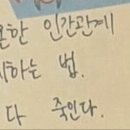 인간관계
하는 법.
다 죽인다.